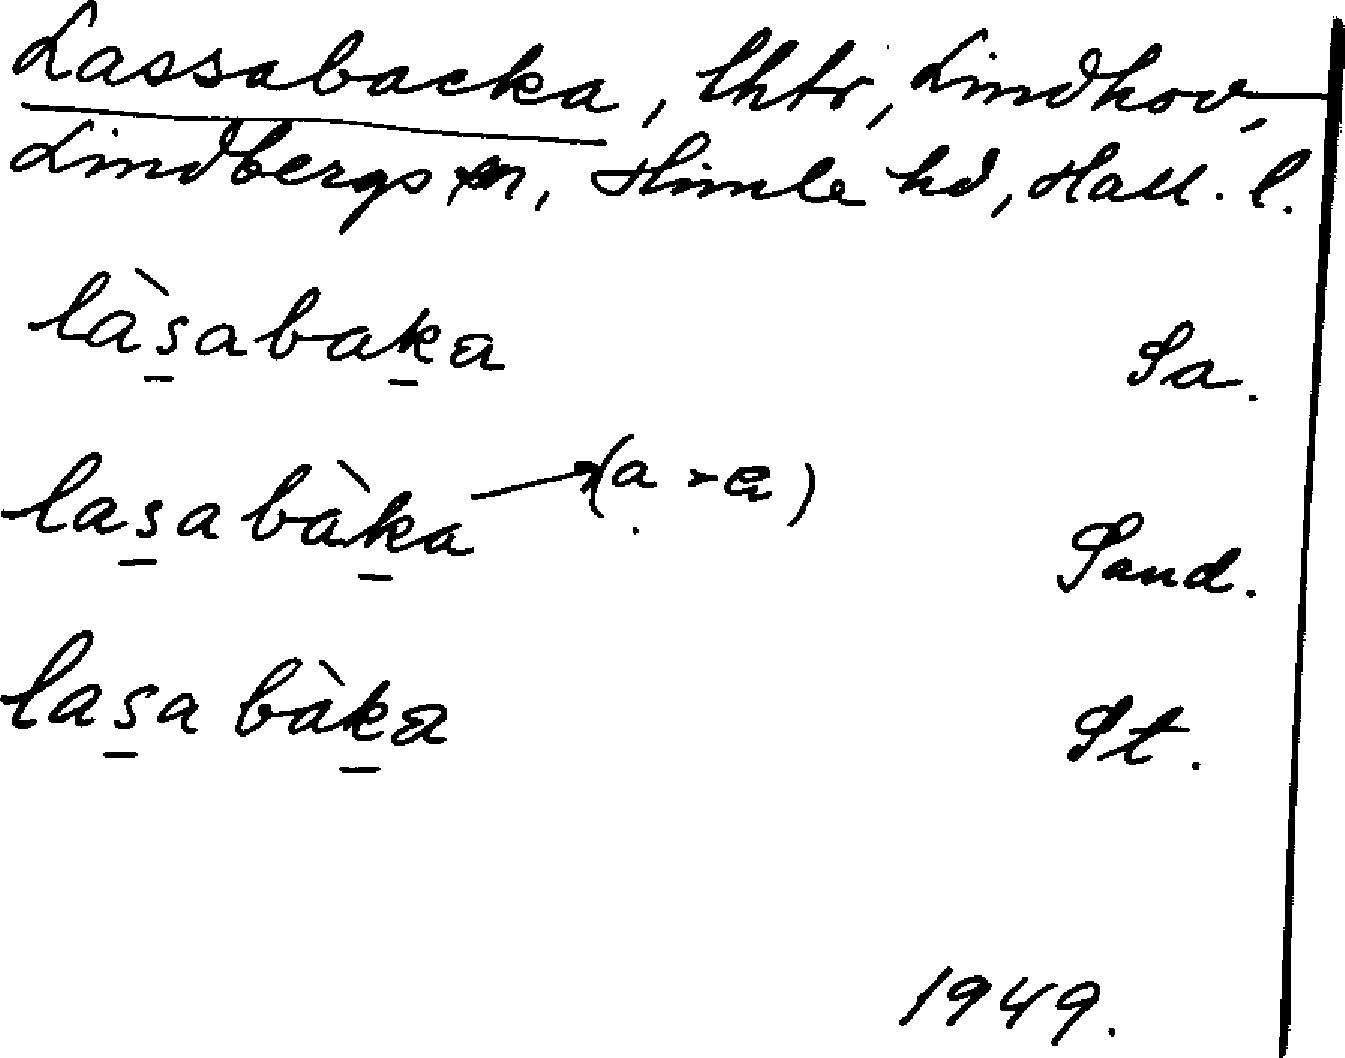 Lassabacka, lhtr, Lindhov,
Lindbergs sn, Himle hd, Hall. l.
làs̱abaḵa Sa.
las̱abàḵa (ạ - a) Sand.
las̱abàḵa St.
1949.